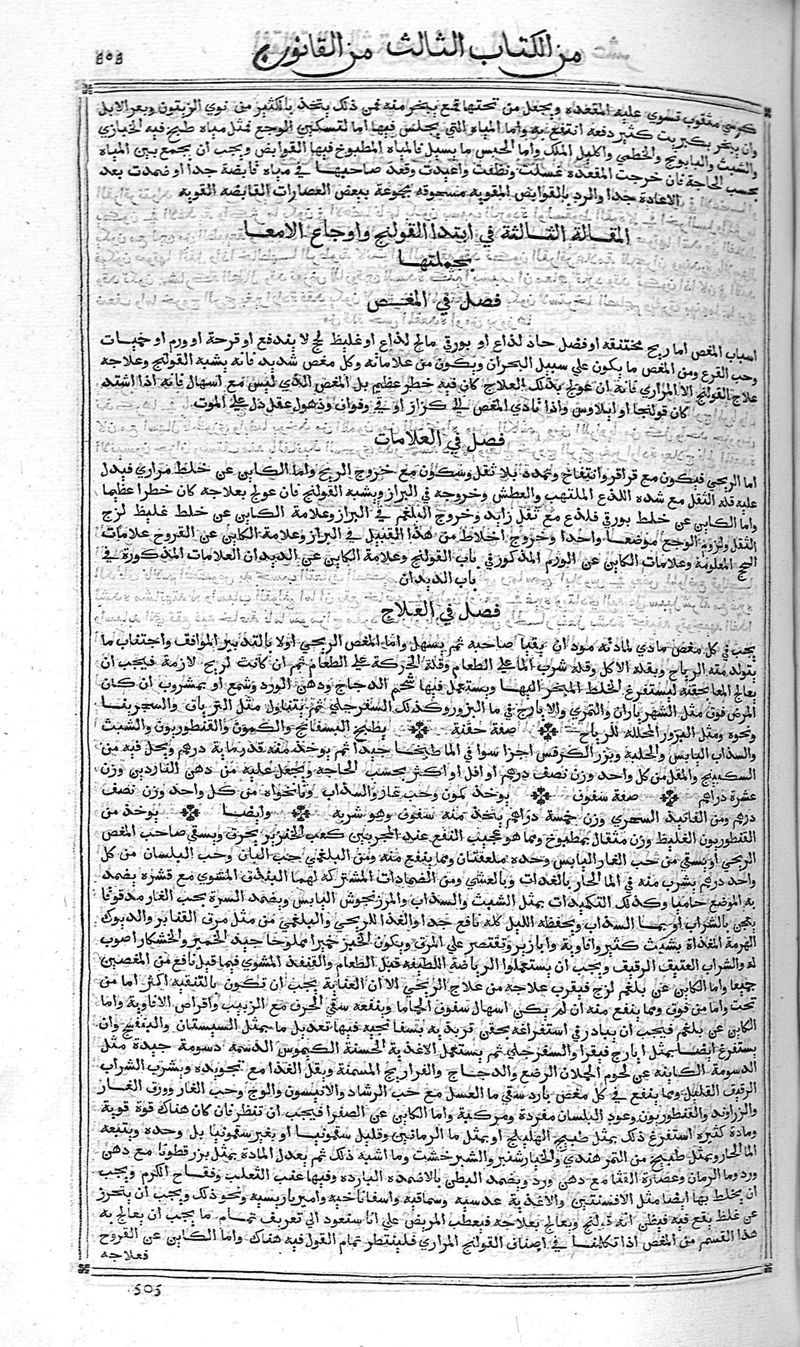 من الكتاب الثالث من القانون
٥٠٥
كرسي مثقوب تسوي عليه المقعده ويجعل من تحتها قمع يبخر منه فمن ذلك يتخذ بالكثير من نوي الزيتون وبعر الابل
وان يبخر بكبريت كثير دفعه انتفع به واما المياه التي يجلس فيها اما لتسكين الوجع فمثل مياه طبخ فيه الخبازي
والشبث والبابونج والخطمي واكليل الملك واما لحبس ما يسيل فالمياه المطبوخ فيها القوابض ويجب ان يجمع بين المياه
بحسب الحاجة فان خرجت المقعده غسلت ونظفت واعيدت وقعد صاحبها في مياه قابضة جدا او ضمدت بعد
الاعاده جدا والرد بالقوابض المقويه مسحوقه مجموعة ببعض العصارات القابضه القويه
المقالة الثالثة في ابتدا القولنج واوجاع الامعا
بجملتها
فصل في المغص
اسباب المغص اما ريح مختنقه او فضل حاد لذاع او بورقي مالح لذاع او غليظ لحج لا يندفع او قرحة او ورم او حميات
وحب القرع ومن المغص ما يكون علي سبيل البحران ويكون من علاماته وكل مغص شديد فانه يشبه القولنج وعلاجه
علاج القولنج الا المراري فانه ان عولج بذلك العلاج كان فيه خطر عظيم بل المغص الذي ليس مع اسهال فانه اذا اشتد
كان قولنجا او ايلاوس واذا تادي المغص الي كزاز او قي وفواق وذهول عقل دل علي الموت
فصل في العلامات
اما الريحي فيكون مع قراقر وانتفاخ وتمدد بلا ثقل وسكون مع خروج الريح واما الكاين عن خلط مراري فيدل
عليه قلة الثقل مع شده اللذع الملتهب والعطش وخروجه في البراز ويشبه القولنج فان عولج بعلاجه كان خطرا عظيما
واما الكاين عن خلط بورقي فلذع مع ثقل زايد وخروج البلغم في البراز وعلامة الكاين عن خلط غليظ لزج
الثقل ولزوم الوجع موضعا واحدا وخروج اخلاط من هذا القبيل في البراز وعلامة الكاين عن القروح علامات
السحج المعلومة وعلامات الكاين عن الورم المذكور في باب القولنج وعلامة الكاين عن الديدان العلامات المذكورة في
باب الديدان
فصل في العلاج
يجب في كل مغص مادي لمادته مدد ان يقيا صاحبه ثم يسهل واما المغص الريحي اولا بالتدبير الموافق واجتناب ما
يتولد منه الرياح وبقله الاكل وقلة شرب الما علي الطعام وقلة الحركة علي الطعام ثم ان كانت الريح لازمة فيجب ان
يعالج المعا بحقنه ليستفرغ الخلط المنجر اليها ويستعمل فيها شحم الدجاج ودهن الورد وشمع او بمشروب ان كان
المرض فوق مثل الشهرياران والتمري والايارج في ما البزور وكذلك السفرجلي ثم يتناول مثل الترياق والسجرينا
ونحوه ومثل البزور المحلله للرياح صفة حقنة يطبخ البسفايج والكمون والقنطوريون والشبث
والسداب اليابس والحلبة وبزر الكرفس اجزا سوا في الما طبخا جيدا ثم يوخذ منه قدر ماية درهم ويحل فيه من
السكبينج والمقل من كل واحد وزن نصف درهم او اقل او اكثر بحسب الحاجه ويجعل عليه من دهن الناردين وزن
عشرة دراهم صفة سفوف يوخذ كمون وحب غار والسداب ونانخواه من كل واحد وزن نصف
درهم ومن الفانيد السجزي وزن خمسة دراهم يتخذ منه سفوف وهو شربه وايضا يوخذ من
القنطوريون الغليظ وزن مثقال بمطبوخ ومما هو عجيب النفع عند المجربين كعب الخنزير يحرق ويسقي صاحب المغص
الريحي او يسقي من حب الغار اليابس وحده ملعقتان ومما ينفع منه ومن البلغمي حب البان وحب البلسان من كل
واحد درهم يشرب منه في الما الحار بالغدات وبالعشي ومن الضمادات المشتركه لهما البندق المشوي مع قشره يضمد
به الموضع حاميا وكذلك التكميدات بمثل الشبث والسداب والمرزنجوش اليابس ويضمد السرة بحب الغار مدقوقا
يعجن بالشراب او بما السداب ويحفظه الليل كله نافع جدا والغذا للريحي والبلغمي من مثل مرق القنابر والديوك
الهرمة المغذاة بشبث كثير وافاوية وابازير وتقتصر علي المرق ويكون الخبز خميرا مملوحا جيد الخمير والخشكار اصوب
له والشراب العتيق الرقيق ويجب ان يستعملوا الرياضة اللطيفه قبل الطعام والقنفذ المشوي فيما قيل نافع من المغصين
جميعا واما الكاين عن بلغم لزج فيقرب علاجه من علاج الريحي الا ان العناية يجب ان تكون بالتنقيه اكثر اما من
تحت واما من فوق ومما ينفع منه ان لم يكن اسهال سفوف الحماما وينفعه سقي الحرف مع الزبيب واقراص الافاوية واما
الكاين عن بلغم فيجب ان يبادر في استفراغه بحقن تربديه بسفايجيه فيها تعديل ما بمثل السبستان والبنفسج وان
يستفرغ ايضا بمثل ايارج فيقرا والسفرجلي ثم يستعمل الاغذية الحسنة الكيموس الدسمه دسومة جيدة مثل
الدسومة الكاينه عن لحوم الحملان الرضع والدجاج والفراريج المسمنة ويقل الغذا مع تجويده ويشرب الشراب
الرقيق القليل ومما ينفع في كل مغص بارد سقي ما العسل مع حب الرشاد والانيسون والوج وحب الغار وورق الغار
والزراوند والقنطوريون وعود البلسان مفردة ومركبة واما الكاين عن الصفرا فيجب ان تنظر فان كان هناك قوة قوية
ومادة كثيره استفرغ ذلك بمثل طبيخ الهليلج او بمثل ما الرمانين وقليل سقمونيا او بغير سقمونيا بل وحده ويتبعه
الما الحار وبمثل طبيخ من التمر هندي والخيارشنبر والشيرخشت وما اشبه ذلك ثم يعدل المادة بمثل بزر قطونا مع دهن
ورد وما الرمان وعصارة القثا مع دهن ورد ويضمد البطن بالاضمده البارده وفيها عنب الثعلب وفقاح الكرم ويجب
ان يخلط بها ايضا مثل الافسنتين والاغذية عدسيه وسماقيه واسفاناخيه واميرباريسيه ونحو ذلك ويجب ان يتحرز
عن غلط يقع فيه فيظن انه قولنج ويعالج بعلاجه فيعطب المريض علي انا سنعود الي تعريف تمام ما يجب ان يعالج به
هذا القسم من المغص اذا تكلمنا في اصناف القولنج المراري فلينتظر تمام القول فيه هناك واما الكاين عن القروح
فعلاجه
505